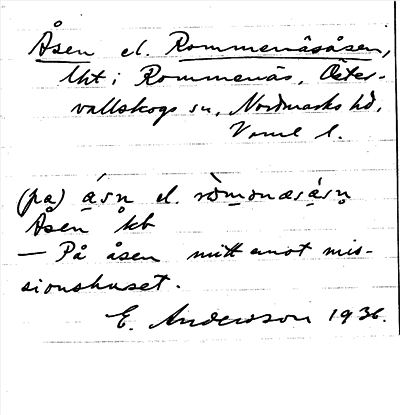 Åsen el. Rommenäsåsen,
lht i Rommenäs, Öster-
vallskogs sn, Nordmarks hd,
Vrml l.
(på) åsn el. ròmonæsåsn
Åsen kb
— På åsen mitt emot mis-
sionshuset.
E. Anderson 1936.